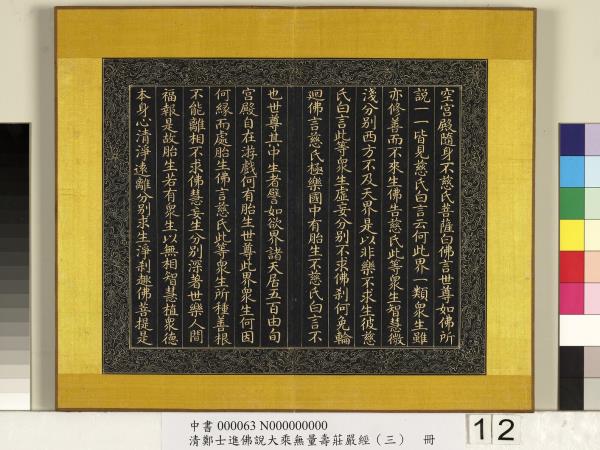 空宮殿隨身不慈氏菩薩白佛言世尊如佛所
說一一皆見慈氏白言云何此界一類眾生雖
亦修善而不求生佛告慈氏此等眾生智慧微
淺分別西方不及天界是以非樂不求生彼慈
氏白言此等眾生虛妄分別不求佛剎何免輪
迴佛言慈氏極樂國中有胎生不慈氏白言不
也世尊其中生者譬如欲界諸天居五百由旬
宮殿自在游戲何有胎生世尊此界眾生何因
何緣而處胎生佛言慈氏此等眾生所種善根
不能離相不求佛慧妄生分別深著世樂人間
福報是故胎生若有眾生以無相智慧植眾德
本身心清淨遠離分別求生淨剎趣佛菩提是
中書 000063 N000000000
清鄭士進佛說大乘無量壽莊嚴經（三） 冊
12